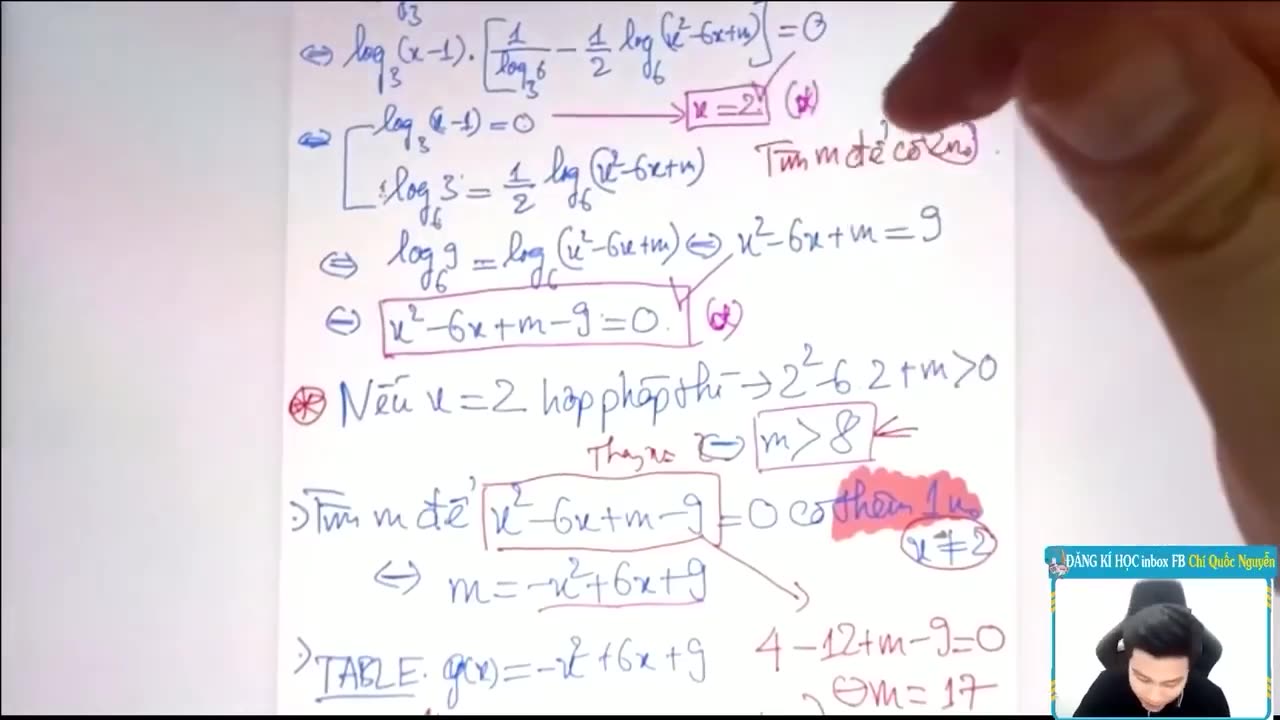 ⇔ log₃(x-1).[1/log₃6 - 1/2 log₆(x²-6x+m)] = 0
⇔ [ log₃(x-1)=0 → x=2 (*)
log₆3 = 1/2 log₆(x²-6x+m)
Tìm m để có 2 no.
⇔ log₆9 = log₆(x²-6x+m) ⇔ x²-6x+m=9
⇔ x²-6x+m-9=0. (*)
* Nếu x=2 hợp pháp thì → 2²-6.2+m>0
Thay x ⇔ m>8 ←
:) Tìm m để x²-6x+m-9=0 có thêm 1 no
x≠2
⇔ m=-x²+6x+9
4-12+m-9=0
:) TABLE. g(x)=-x²+6x+9
⇔ m=17
ĐĂNG KÍ HỌC inbox FB Chí Quốc Nguyễn